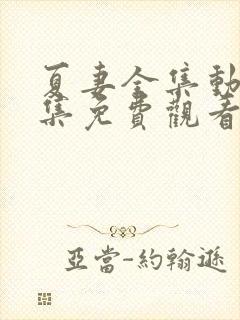 夏妻全集動
集免費觀看
亞當-約翰遜